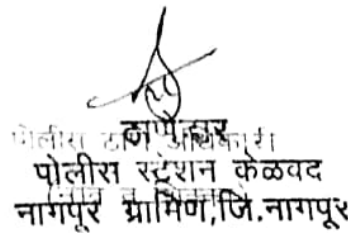 ठाणेदार
पोलीस ठाणे अधिकारी
पोलीस स्टेशन केळवद
नागपूर ग्रामिण,जि.नागपूर